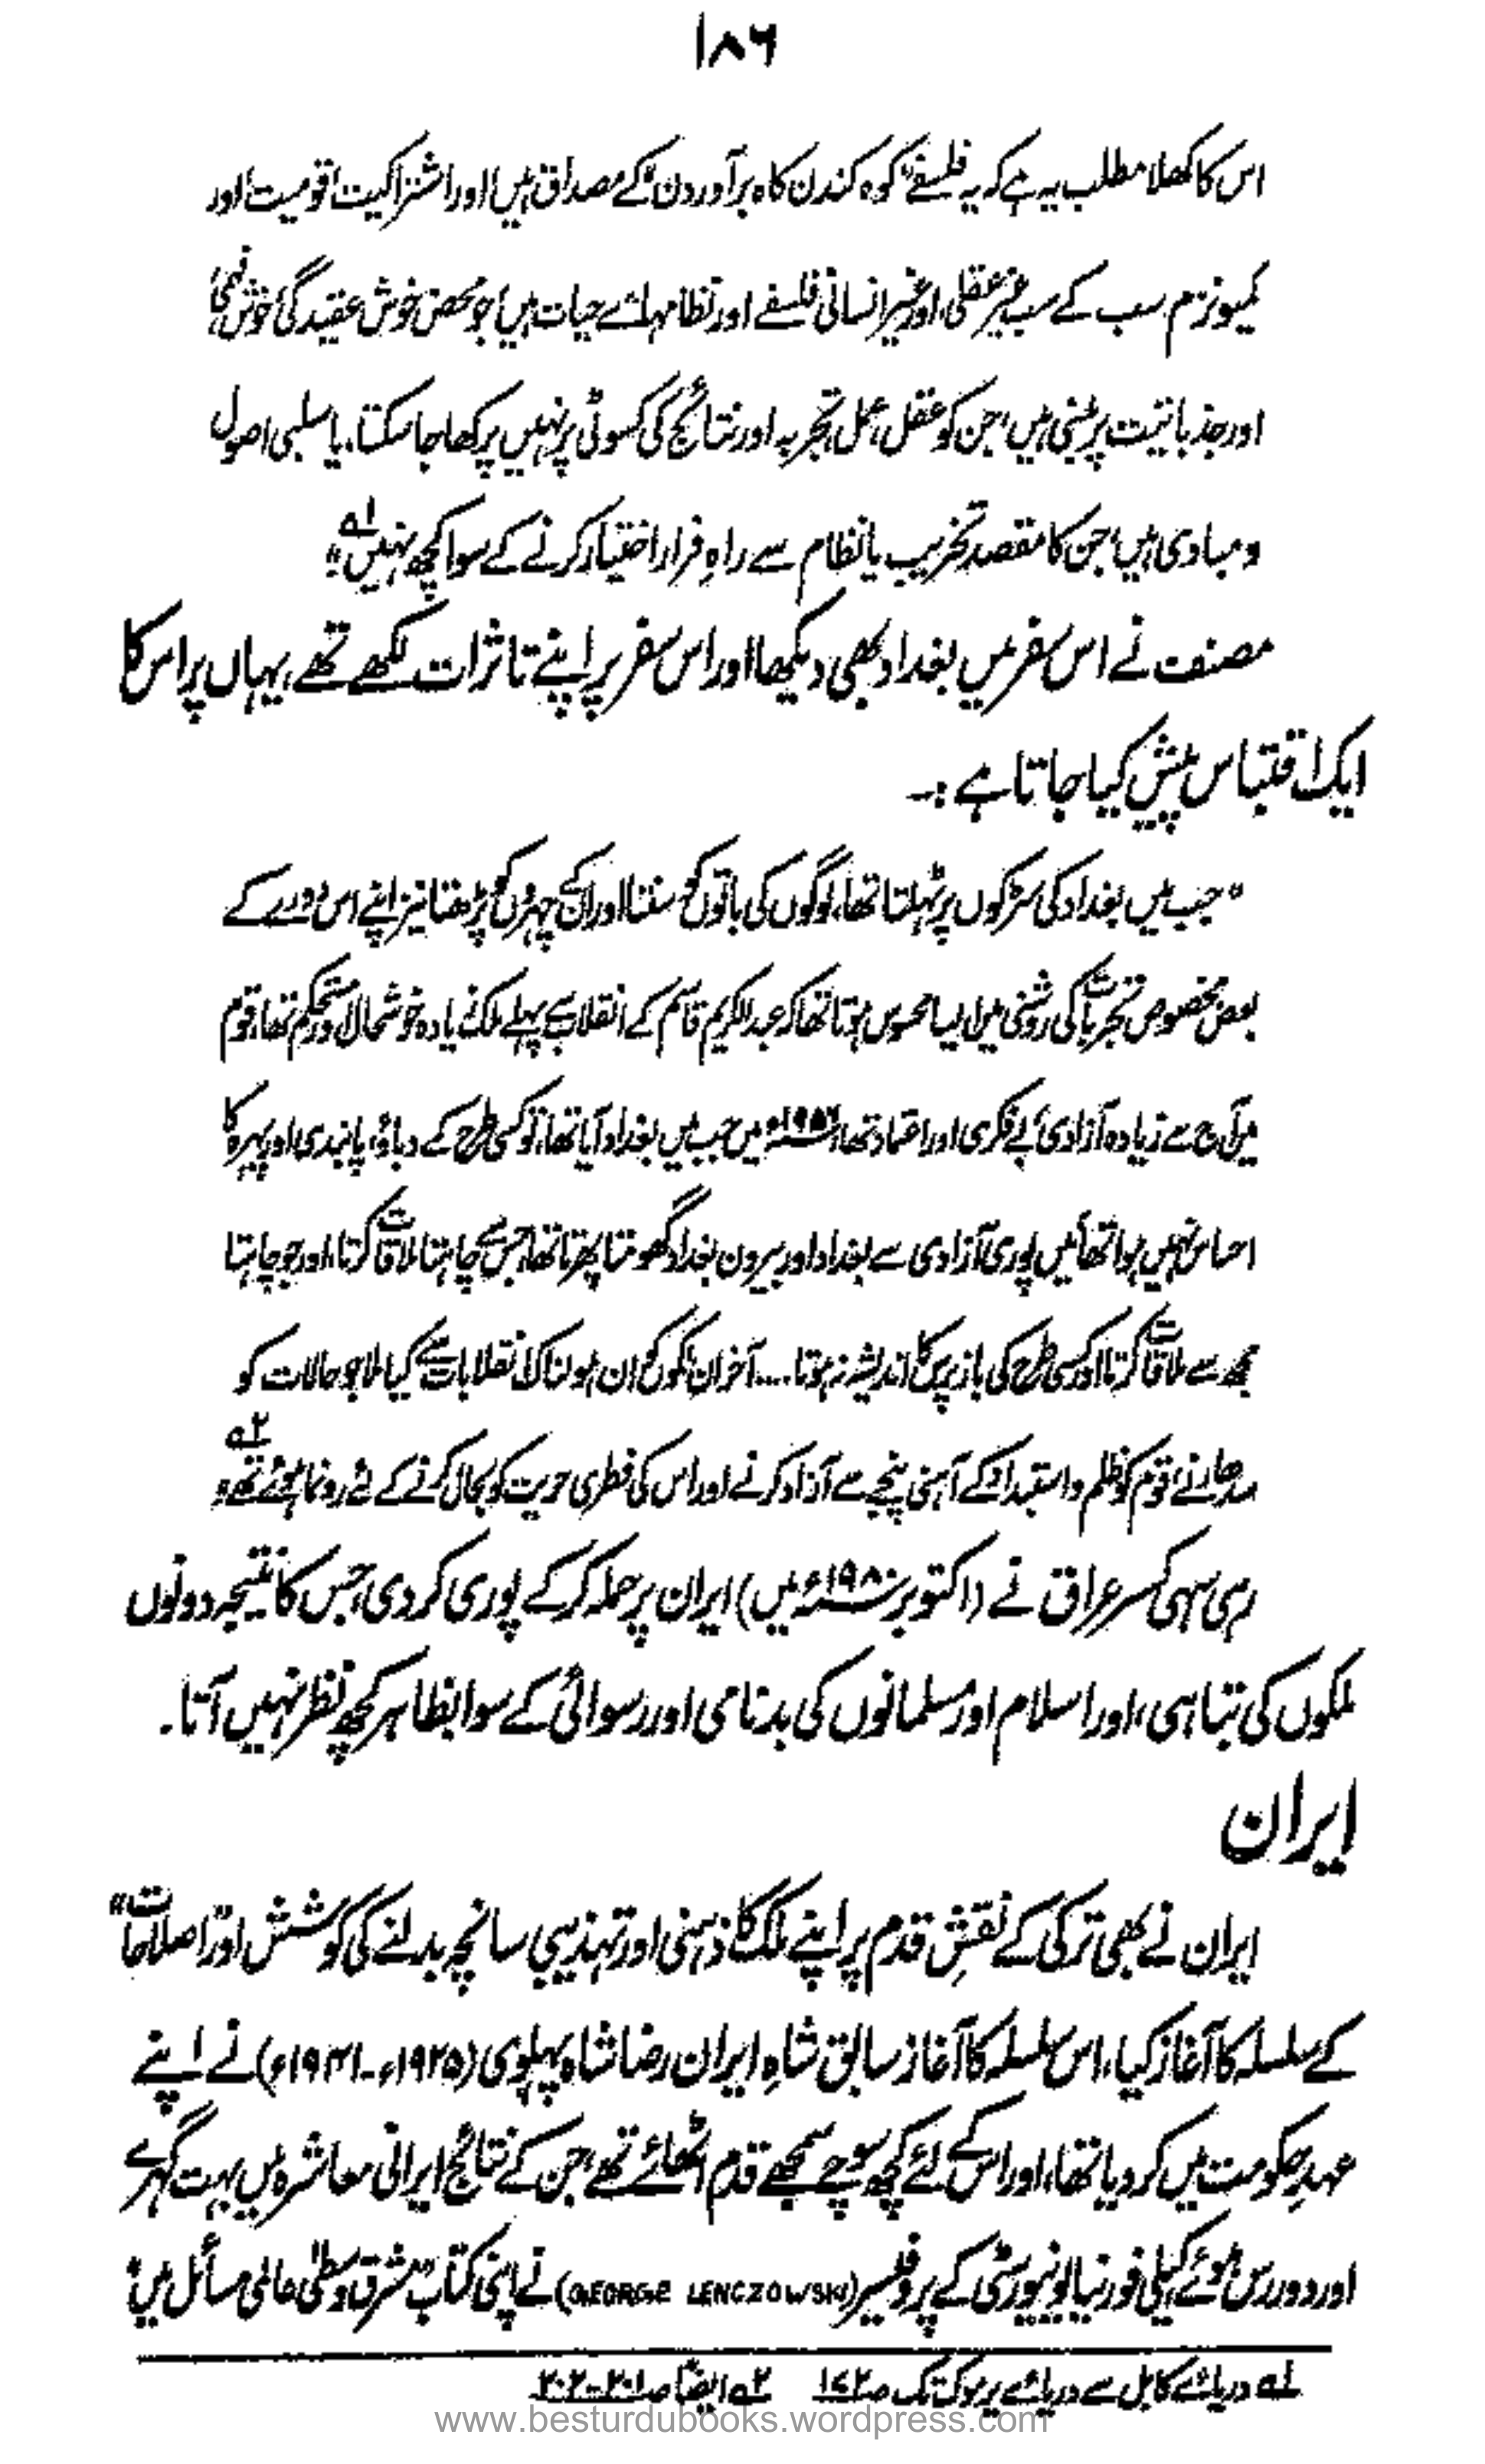 ۱۸۶
اس کا کھلا مطلب یہ ہے کہ یہ فلسفے "کوہ کندن کاہ برآوردن" کے مصداق ہیں اور اشتراکیت، قومیت اور
کمیونزم سب کے سب غیر عقلی، اور غیر انسانی فلسفے اور نظامہائے حیات ہیں، جو محض خوش عقیدگی، خوش فہمی،
اور جذباتیت پر مبنی ہیں، جن کو عقل، عمل، تجربہ اور نتائج کی کسوٹی پر نہیں پرکھا جا سکتا، یا سلبی اصول
و مبادی ہیں، جن کا مقصد تخریب یا نظام سے راہِ فرار اختیار کرنے کے سوا کچھ نہیں" ۱ہ
مصنف نے اس سفر میں بغداد بھی دیکھا اور اس سفر پر اپنے تاثرات لکھے تھے، یہاں پر اس کا
ایک اقتباس پیش کیا جاتا ہے :۔
"جب میں بغداد کی سڑکوں پر ٹہلتا تھا، لوگوں کی باتوں کو سنتا اور ان کے چہروں کو پڑھتا نیز اپنے اس دورے کے
بعض مخصوص تجربات کی روشنی میں ایسا محسوس ہوتا تھا کہ عبدالکریم قاسم کے انقلاب سے پہلے ملک زیادہ خوشحال اور مستحکم تھا، قوم
میں آج سے زیادہ آزادی، بے فکری اور اعتماد تھا، ۱۹۵۶ء میں جب میں بغداد آیا تھا، تو کسی طرح کے دباؤ، پابندی اور پہرہ کا
احساس نہیں ہوا تھا، میں پوری آزادی سے بغداد اور بیرون بغداد گھومتا پھرتا تھا، جس سے چاہتا ملاقات کرتا، اور جو چاہتا
مجھ سے ملاقات کرتا اور کسی طرح کی باز پرس کا اندیشہ نہ ہوتا .... آخر ان لوگوں کو ان ہولناک انقلابات سے کیا ملا جو حالات کو
سدھارنے قوم کو ظلم و استبداد کے آہنی پنجے سے آزاد کرنے اور اس کی فطری حریت کو بحال کرنے کے لئے رونما ہوئے تھے" ۲ہ
رہی سہی کسر عراق نے (اکتوبر ۱۹۸۰ء میں) ایران پر حملہ کر کے پوری کر دی، جس کا نتیجہ دونوں
ملکوں کی تباہی، اور اسلام اور مسلمانوں کی بدنامی اور رسوائی کے سوا بظاہر کچھ نظر نہیں آتا۔
ایران
ایران نے بھی ترکی کے نقشِ قدم پر اپنے ملک کا ذہنی اور تہذیبی سانچہ بدلنے کی کوشش اور "اصلاحات"
کے سلسلہ کا آغاز کیا، اس سلسلہ کا آغاز سابق شاہِ ایران رضا شاہ پہلوی (۱۹۲۵ء - ۱۹۴۱ء) نے اپنے
عہدِ حکومت میں کر دیا تھا، اور اس کے لئے کچھ سوچے سمجھے قدم اٹھائے تھے، جن کے نتائج ایرانی معاشرہ میں بہت گہرے
اور دوررس ہوئے، کیلی فورنیا یونیورسٹی کے پروفیسر (GEORGE LENCZOWSKI) نے اپنی کتاب "مشرق وسطیٰ عالمی مسائل میں"
۱ہ دریائے کابل سے دریائے یرموک تک صـ۱۴۲ ۲ہ ایضاً صـ۲۰۱-۲۰۲
www.besturdubooks.wordpress.com